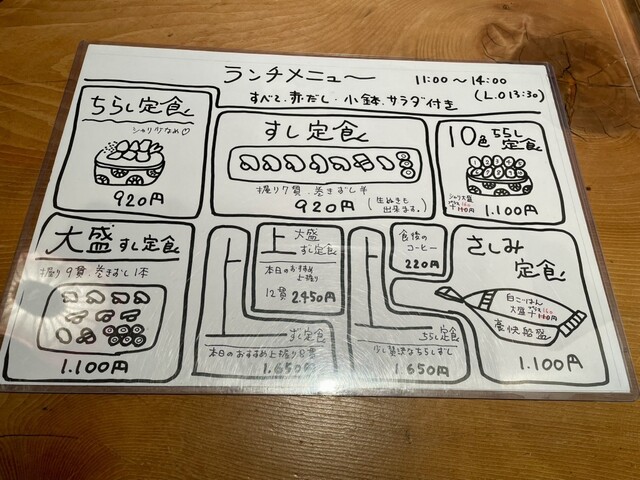 ランチメニュー 11:00〜14:00
すべて、赤だし・小鉢、サラダ付き (L.O 13:30)
ちらし定食
シャリ少なめ♡
920円
すし定食
握り7貫、巻きずし半
920円 (生ぬきも出来ます。)
10色ちらし定食
シャリ大盛
1.100円
大盛すし定食
握り9貫、巻きずし1本
1.100円
上大盛すし定食
本日のおすすめ
上握り
12貫 2.450円
上すし定食
本日のおすすめ上握り8貫
1.650円
食後の
コーヒー
220円
上ちらし定食
少し贅沢なちらしずし
1.650円
さしみ
定食
白ごはん
大盛
豪快船盛
1.100円